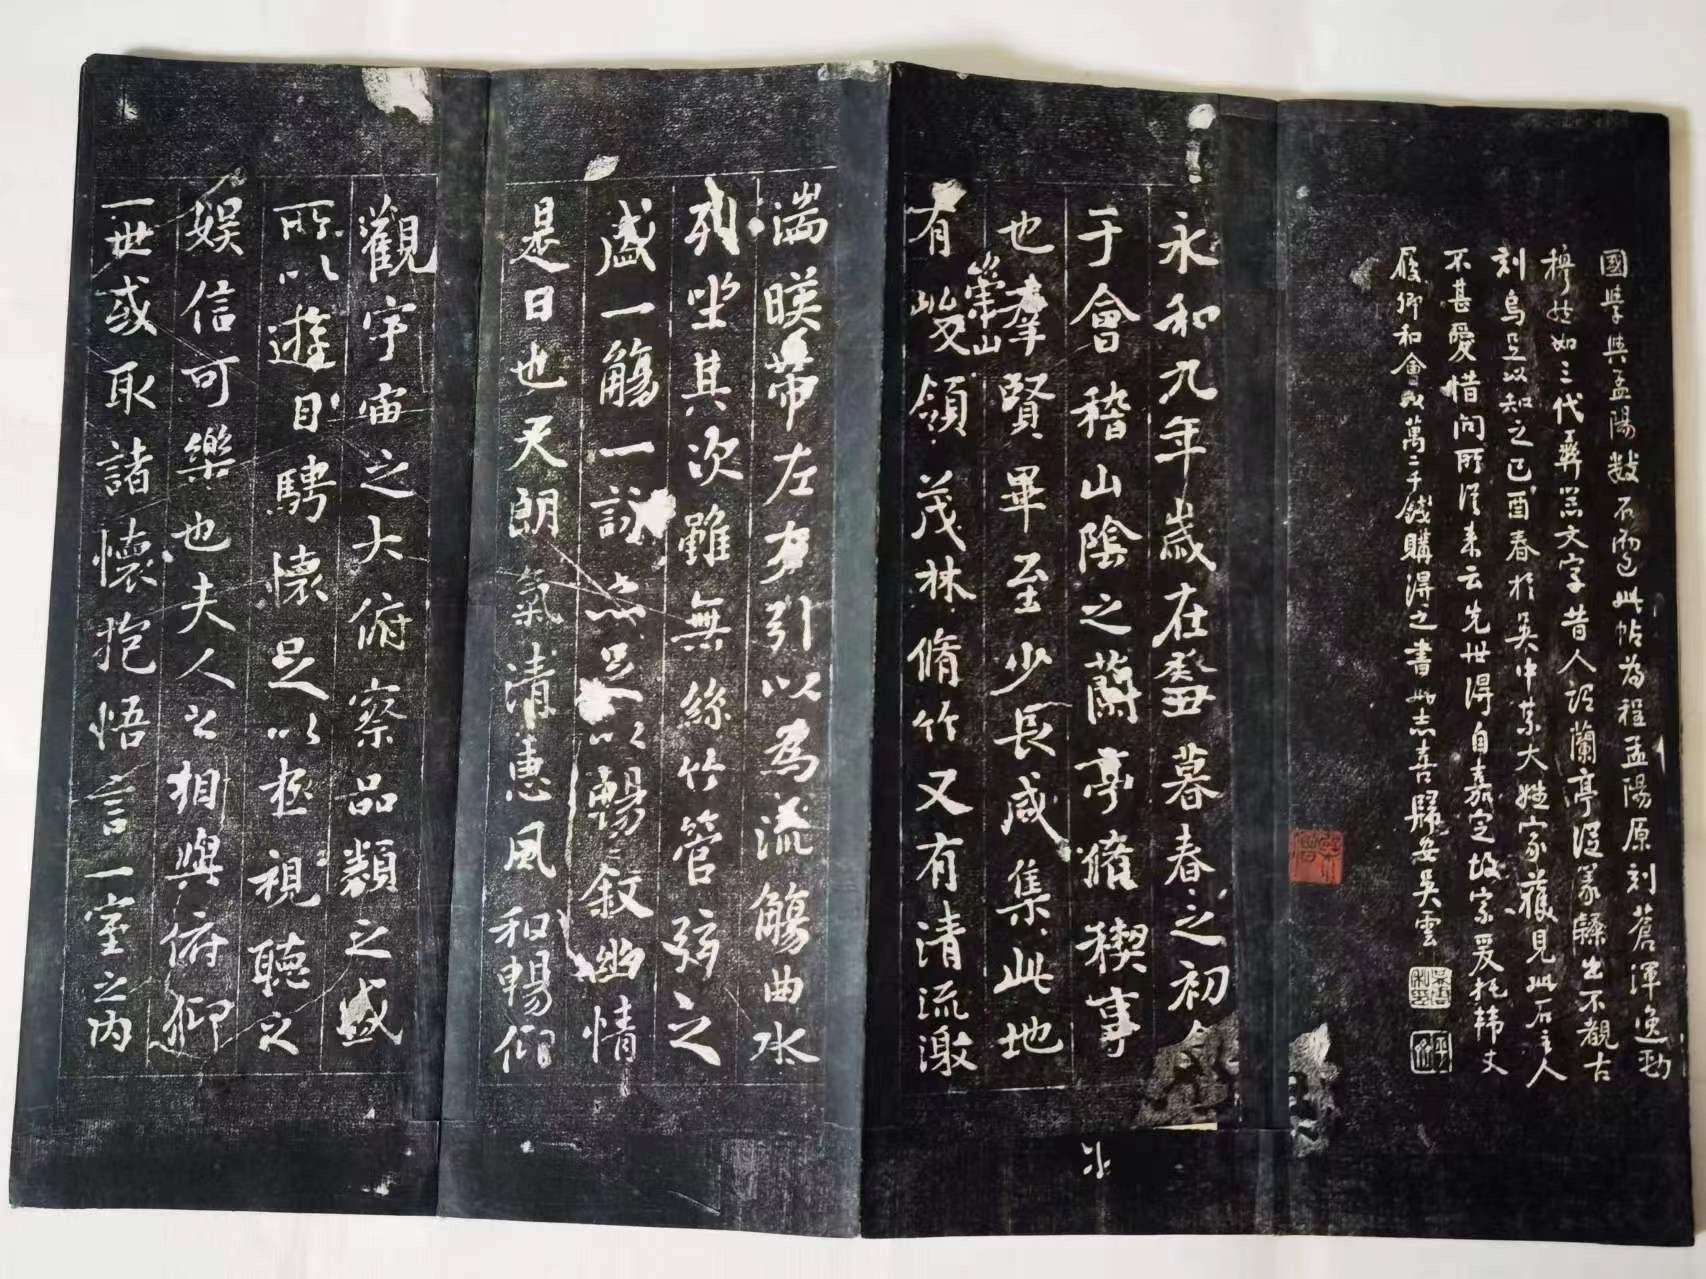 國學與孟陽數石而已此帖為程孟陽原刻蒼渾逸勁
穆然如三代彝器文字昔人評蘭亭從篆隸出不觀古
刻烏足以知之已酉春於吳中某大姓家獲見此石主人
不甚愛惜問所從來云先世得自嘉定故家爰托韓丈
履卿和會以萬二千錢購得之書此志喜歸安吳雲
永和九年歲在癸丑暮春之初會
于會稽山陰之蘭亭脩稧事
也羣賢畢至少長咸集此地
有崇山峻領茂林脩竹又有清流激
湍暎帶左右引以為流觴曲水
列坐其次雖無絲竹管弦之
盛一觴一詠亦足以暢敘幽情
是日也天朗氣清惠風和暢仰
觀宇宙之大俯察品類之盛
所以遊目騁懷足以極視聽之
娛信可樂也夫人之相與俯仰
一世或取諸懷抱悟言一室之內